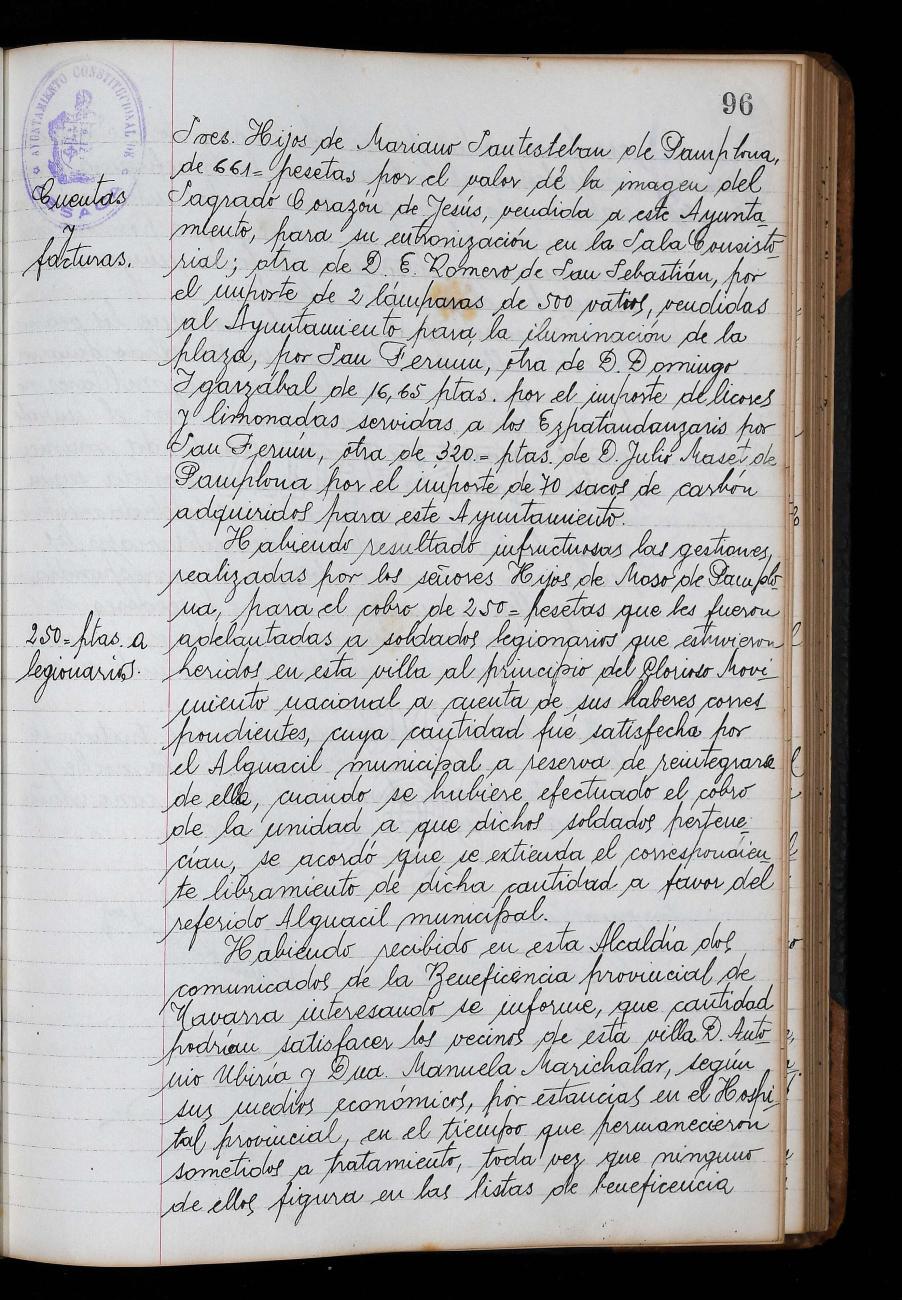 96
AYUNTAMIENTO CONSTITUCIONAL DE
Cuentas
y
facturas.
Sres. Hijos de Mariano Santesteban de Pamplona,
de 661= pesetas por el valor de la imagen del
Sagrado Corazón de Jesús, vendida a este Ayunta-
miento, para su entronización en la Sala Consisto-
rial; otra de D. E. Romero de San Sebastián, por
el importe de 2 lámparas de 500 vatios, vendidas
al Ayuntamiento para la iluminación de la
plaza, por San Fermin, otra de D. Domingo
Igarzábal de 16,65 ptas. por el importe de licores
y limonadas servidas a los Ezpatandanzaris por
San Fermín, otra de 320.= ptas. de D. Julio Maset de
Pamplona por el importe de 70 sacos de carbón
adquiridos para este Ayuntamiento.
Habiendo resultado infructuosas las gestiones,
realizadas por los señores Hijos de Moso de Pamplo-
na, para el cobro de 250= pesetas que les fueron
250= ptas. a
legionarios.
adelantadas a soldados legionarios que estuvieron
heridos en esta villa al principio del Glorioso Movi-
miento nacional a cuenta de sus haberes corres-
pondientes, cuya cantidad fué satisfecha por
el Alguacil municipal a reserva de reintegrarse
de ella, cuando se hubiere efectuado el cobro
de la unidad a que dichos soldados pertene-
cían, se acordó que se extienda el correspondien-
te libramiento de dicha cantidad a favor del
referido Alguacil municipal.
Habiendo recibido en esta Alcaldía dos
comunicados de la Beneficencia provincial de
Navarra interesando se informe, que cantidad
podrían satisfacer los vecinos de esta villa D. Anto-
nio Ubiría y Dna. Manuela Marichalar, según
sus medios económicos, por estancias en el Hospi-
tal provincial, en el tiempo que permanecieron
sometidos a tratamiento, toda vez que ninguno
de ellos figura en las listas de beneficencia